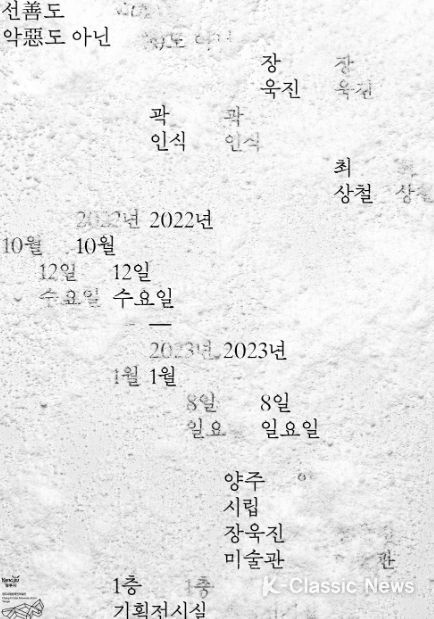 선善도
악惡도 아닌
장 장
욱진 욱진
곽 곽
인식 인식
최
상철 상철
2022년 2022년
10월 10월
12일 12일
수요일 수요일
—
2023년 2023년
1월 1월
8일 8일
일요 일요일
양주
시립
장욱진
미술관 관
1층 1층
기획전시실
K-Classic News